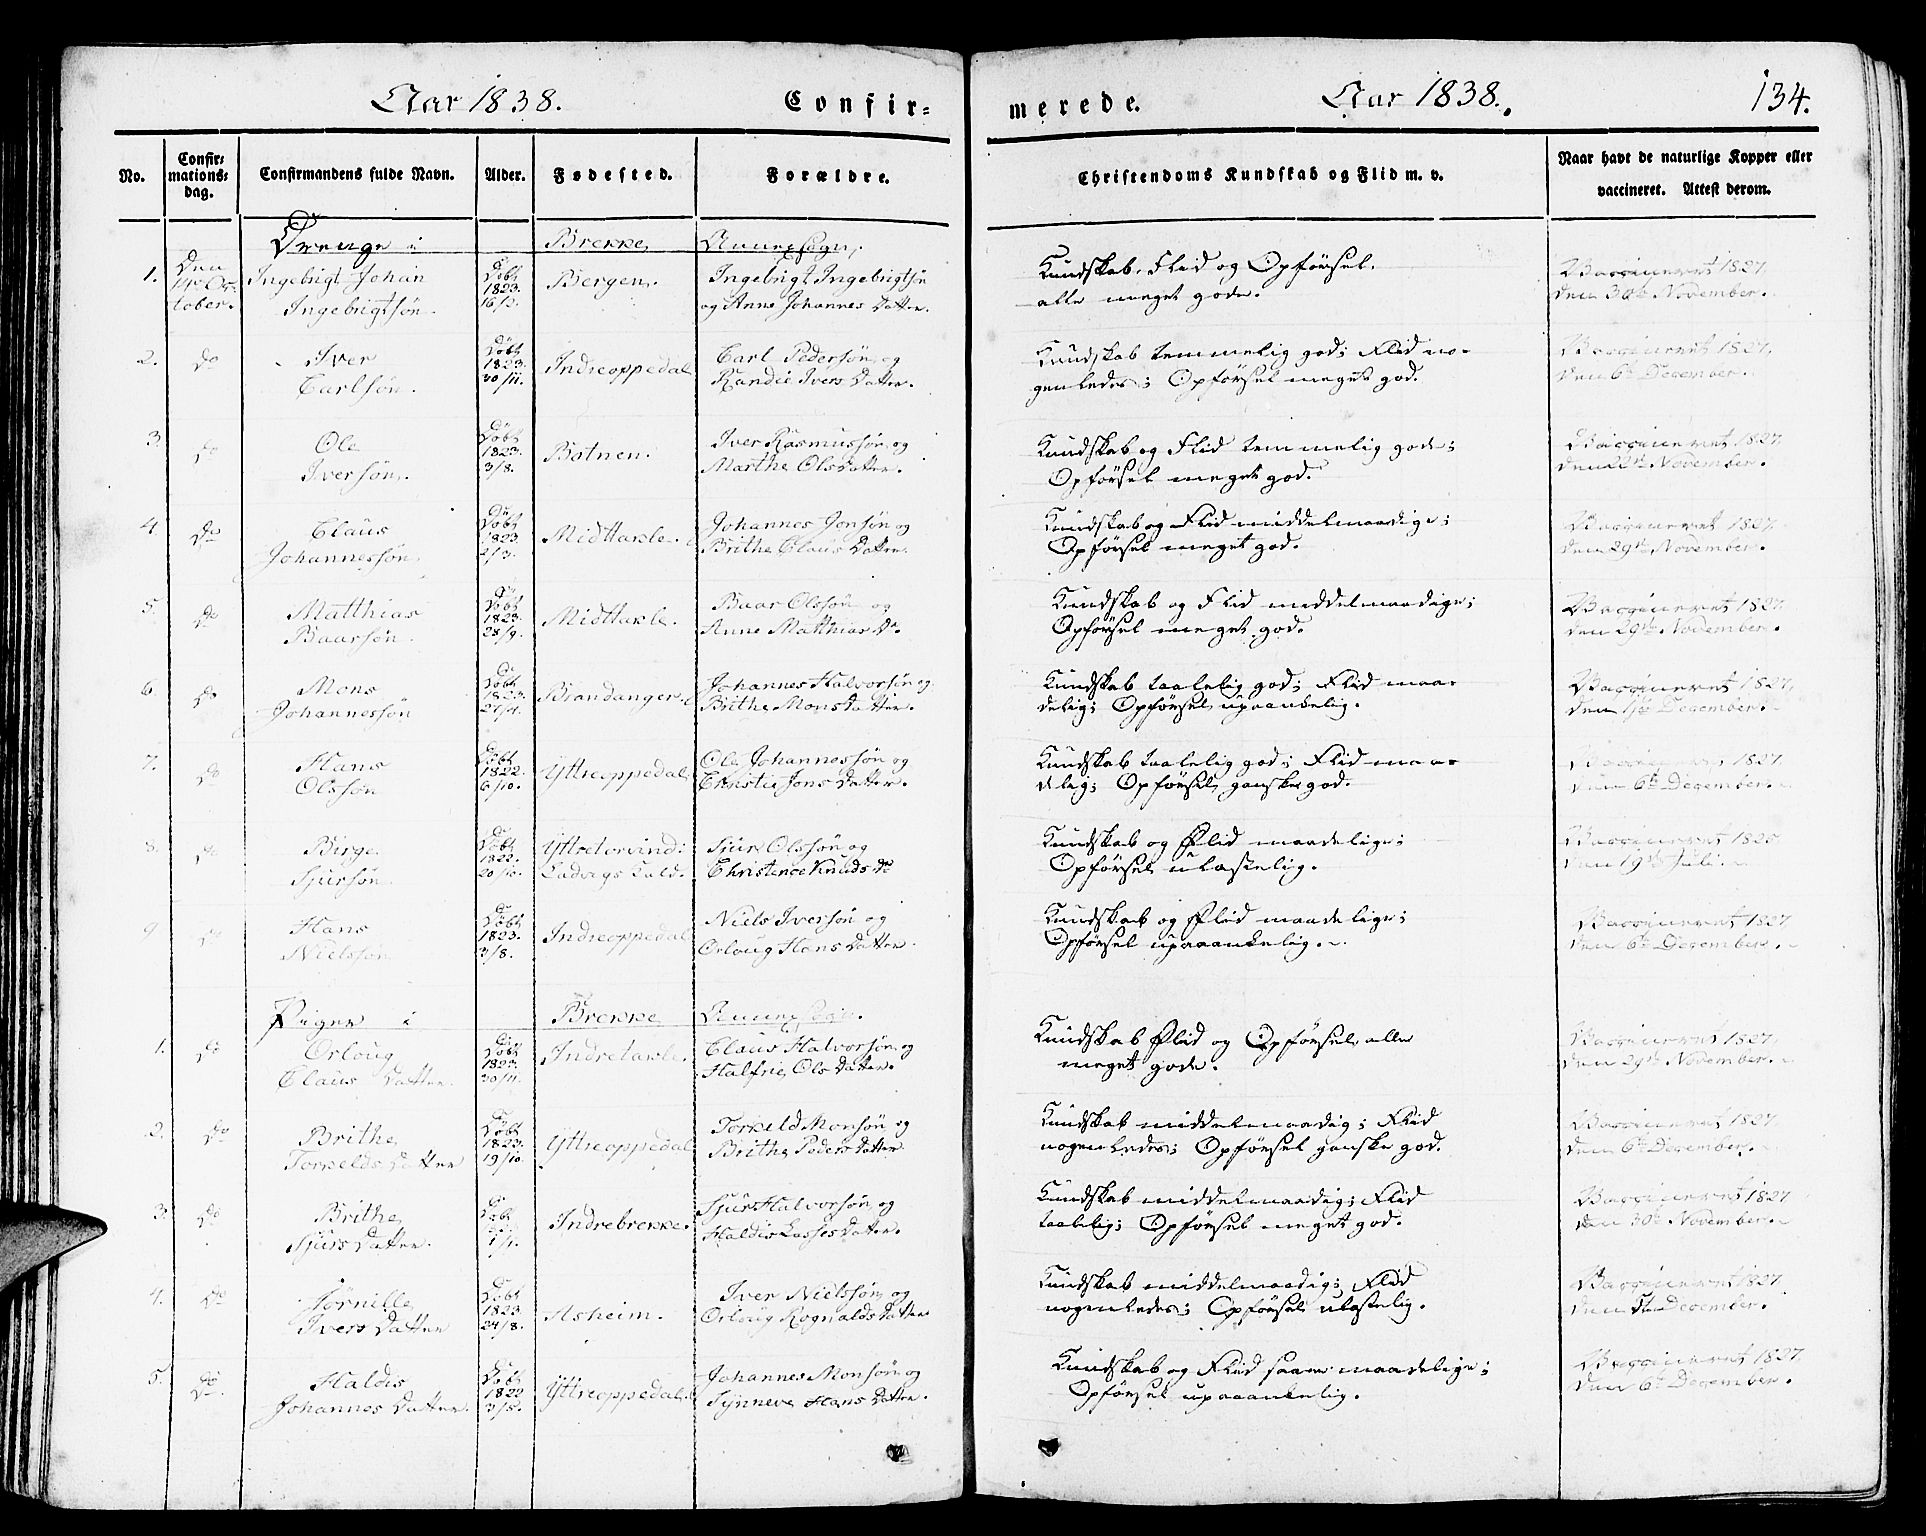 Aar 1838. Confir=
merede. Aar 1838. 134.
No. Confir= mations= dag. Confirmandens fulde Navn. Alder. Fødested. Forældre. Christendoms Kundskab og Flid m. v. Naar havt de naturlige Kopper eller vaccineret. Attest derom.
Drenge i Brekke Annexsogn.
1. Den Ingebrigt Johan Døbt 1823. Bergen. Ingebrigt Ingebrigtsøn Kundskab, Flid og Opførsel, Vaccineret 1827
tober. Ingebrigtsøn. og Anne Johannes Datter. alle meget gode. den 30te November.
2. do Iver Døbt 1823. Indreoppedal Carl Pedersøn og Kundskab temmelig god; Flid no- Vaccineret 1827,
Carlsøn. 30/11. Randie Ivers Datter. genledes; Opførsel meget god. den 6te December.
3. do Ole Døbt 1823. Botnen. Iver Rasmussøn og Kundskab og Flid temmelig gode; Vaccineret 1827
Iversøn. 3/8. Marthe Olsdatter. Opførsel meget god. den 22de November.
4. do Claus Døbt 1823 Midttakle. Johannes Jonsøn og Kundskab og Flid middelmaadige; Vaccineret 1827
Johannessøn 2/3. Brithe Claus Datter. Opførsel meget god. den 29de November.
5. do Matthias Døbt 1823. Midttakle. Baar Olssøn og Kundskab og Flid middelmaadige; Vaccineret 1827
Baarsøn. 28/9. Anne Matthias Dr. Opførsel meget god. den 29de November.
6. do Mons Døbt 1823. Brandanger. Johannes Halvorsøn og Kundskab taalelig god; Flid maa- Vaccineret 1827,
Johannessøn Brithe Monsdatter. delig; Opførsel upaankelig. den 1ste December.
7. do Hans Døbt 1822. Yttreoppedal Ole Johannessøn og Kundskab taalelig god; Flid maa- Vaccineret 1827
Olssøn 6/10. Christie Jons Datter. delig; Opførsel ganske god. den 6te December.
8. do Birge Døbt 1822. Yttretorvind: Sjur Olssøn og Kundskab og Flid maadelige; Vaccineret 1825
Sjursøn 20/10. Christence Knuds Dr Opførsel ulastelig. den 19de Juli.
9 do Hans Døbt 1823. Indreoppedal Niels Iversøn og Kundskab og Flid maadelige; Vaccineret 1827
Nielssøn 3/8. Orloug Hans Datter. Opførsel upaaankelig. den 6te December.
Piger i Brekke Annexsogn.
1. do Orloug Døbt 1823. Indretakle. Claus Halvorsøn og Kundskab Flid og Opførsel, alle Vaccineret 1827,
Claus Datter. 30/11. Halfrie Ols Datter. meget gode. den 29de November.
2. do Brithe Døbt 1823. Yttreoppedal Torkeld Monsøn og Kundskab middelmaadig; Flid Vaccineret 1827
Torkelds Datter 19/10. Brithe Peders Datter nogenledes; Opførsel ganske god. den 6te December.
3. do Brithe Døbt Indrebrekke. Sjur Halvorsøn og Kundskab middelmaadig; Flid Vaccineret 1827
Sjurs Datter. Haldis Lassesdatter. taalelig; Opførsel meget god. den 30te November.
4. do Pernille Døbt 1823 Asheim. Iver Nielssøn og Kundskab middelmaadig; Flid Vaccineret 1827
Ivers Datter 24/8. Orloug Rognaldsdatter nogenledes; Opførsel ulastelig. den December.
5. do Haldis Døbt 1822 Yttreoppedal. Johannes Monsøn og Kundskab og Flid saare maadelige; Vaccineret 1827.
Johannes Datter. 3/5. Synneve Hans Datter. Opførsel upaaankelig. den 6te December.